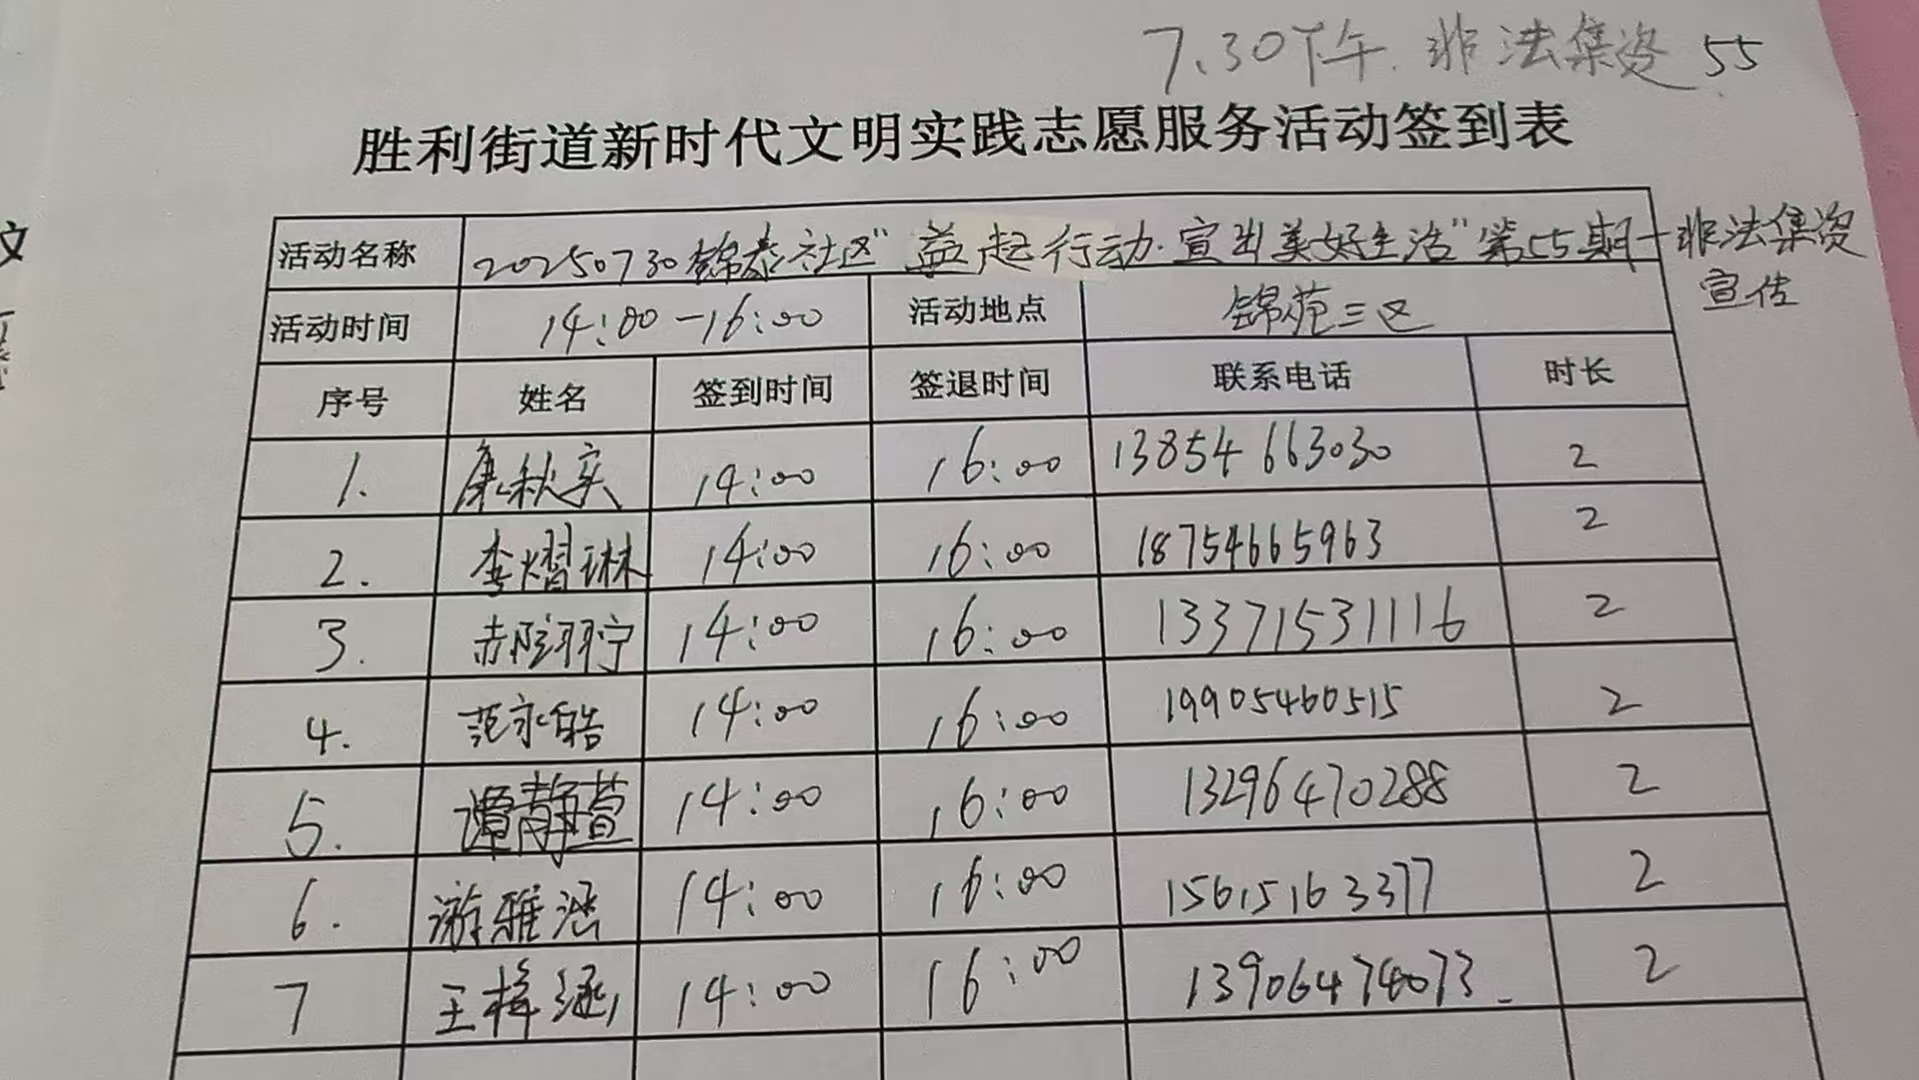 7.30下午. 非法集资 55
胜利街道新时代文明实践志愿服务活动签到表
活动名称 20250730锦泰社区"益起行动·宣出美好生活"第55期-非法集资
宣传
活动时间 14:00-16:00 活动地点 锦苑三区
序号 姓名 签到时间 签退时间 联系电话 时长
1. 康秋实 14:00 16:00 13854663030 2
2. 李熠琳 14:00 16:00 18754665963 2
3. 14:00 16:00 13371531116 2
4. 范永皓 14:00 16:00 19905460515 2
5. 谭静萱 14:00 16:00 13296470288 2
6. 游雅涵 14:00 16:00 15615163377 2
7 王梓涵 14:00 16:00 13906474073 2
文